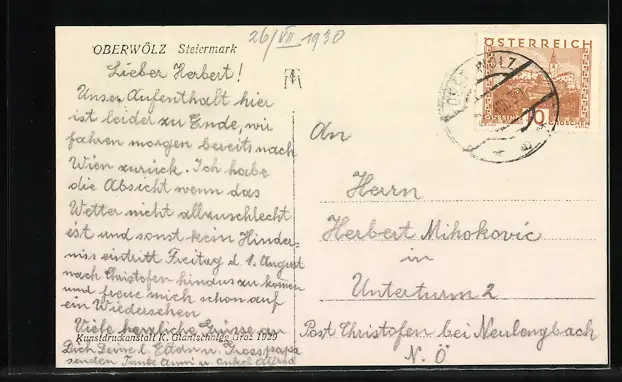 OBERWÖLZ Steiermark
26/VII 1930
Lieber Herbert!
Unser Aufenthalt hier
ist leider zu Ende, wir
fahren morgen bereits nach
Wien zurück. Ich habe
die Absicht wenn das
Wetter nicht allzuschlecht
ist und sonst kein Hinder-
niss eintritt Freitag d. 1. August
nach Christofen hinaus zu kommen
und freue mich schon auf
ein Wiedersehen
Viele herzliche Grüsse an
Kunstdruckanstalt K. Glantschnigg Graz 1929
Dich Deine l. Eltern u. Grosspapa
senden Tante Anni u. Onkel Alfred
ÖSTERREICH
GÜSSING 10 GROSCHEN
An
Herrn
Herbert Mihokovic
in
Unterturm 2
Post Christofen bei Neulengbach
N. Ö